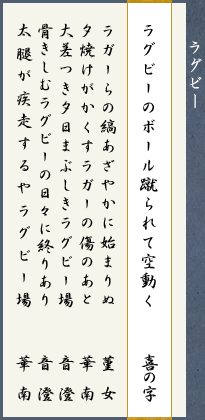 ラグビー
ラグビーのボール蹴られて空動く 喜の字
ラガーらの縞あざやかに始まりぬ 菫女
夕焼けがかくすラガーの傷のあと 華南
大差つき夕日まぶしきラグビー場 音澄
骨きしむラグビーの日々に終りあり 音澄
太腿が疾走するやラグビー場 華南